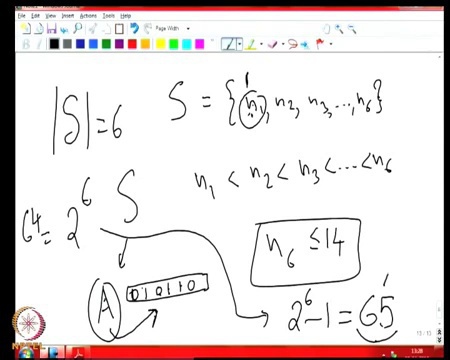 File Edit View Insert Actions Tools Help
Page Width
|S| = 6
S = {n₁, n₂, n₃, ..., n₆}
1
n₁ < n₂ < n₃ < ... < n₆
64 = 2⁶ S
n₆ ≤ 14
A
010110
2⁶ - 1 = 65